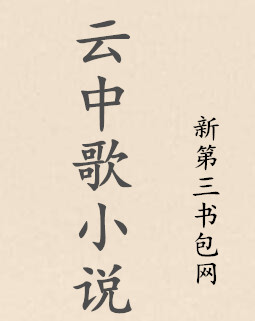 云中歌小说
新第三书包网